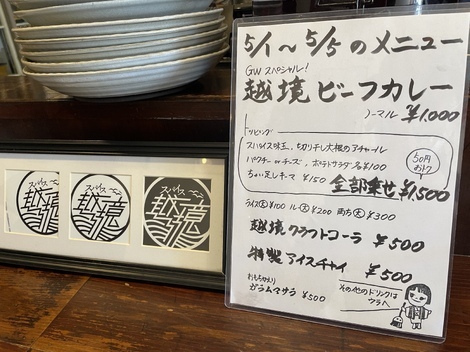 5/1～5/5のメニュー
GWスペシャル！
越境ビーフカレー
ノーマル ¥1,000
トッピング
スパイス味玉、切り干し大根のアチャール
パクチー or チーズ、ポテトサラダ 各¥100
ちょい足しキーマ ¥150
50円おトク
全部乗せ ¥1,500
ライス大¥100 ルー大¥200 両方大¥300
越境クラフトコーラ ¥500
特製アイスチャイ ¥500
おもちかえり
ガラムマサラ ¥500
その他のドリンクは
ウラへ
スパイス
越境
スパイス
越境
スパイス
越境